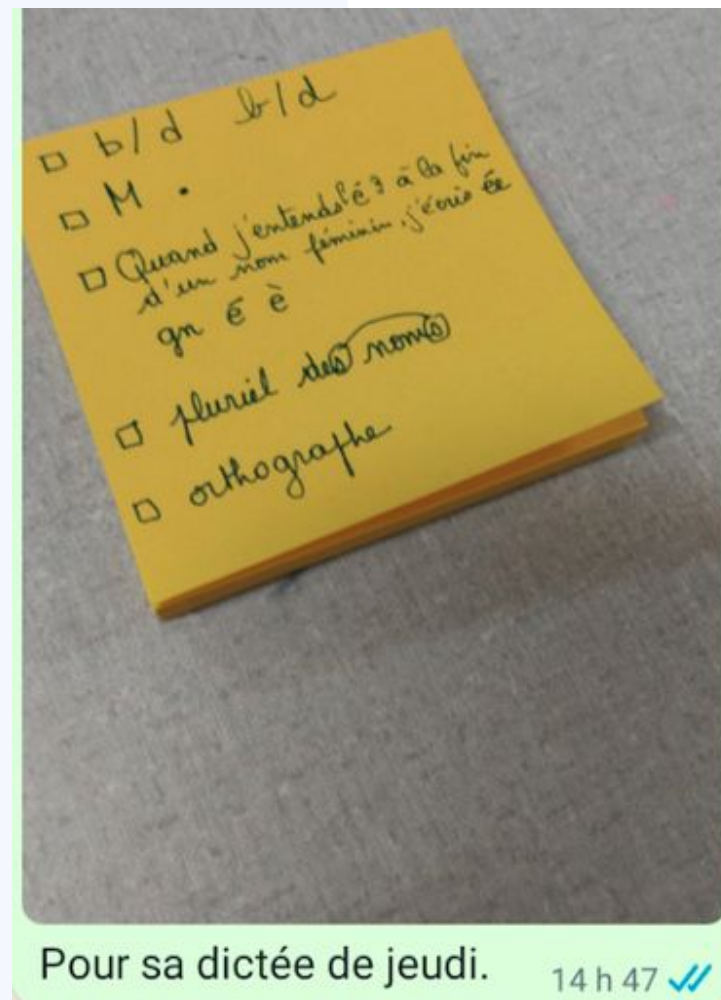 □ b/d b/d
□ M .
□ Quand j'entends [é] à la fin
d'un nom féminin, j'écris ée
gn é è
□ pluriel des noms
□ orthographe
Pour sa dictée de jeudi.
14 h 47